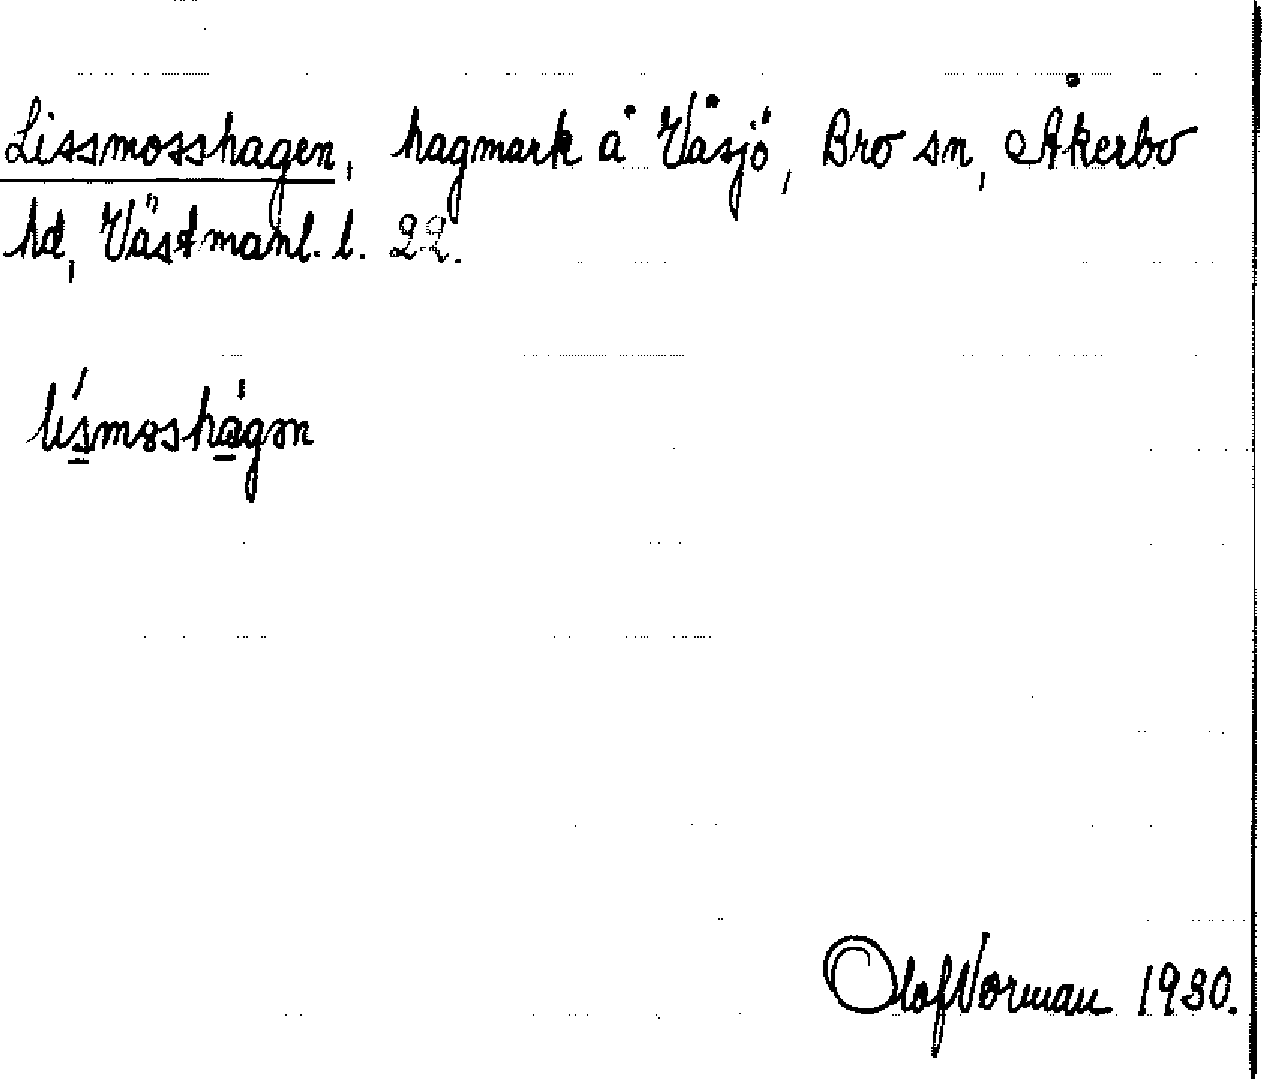 Lissmosshagen, hagmark å Väsjö, Bro sn, Åkerbo
hd, Västmanl. l. 22.
Olof Norman 1930.